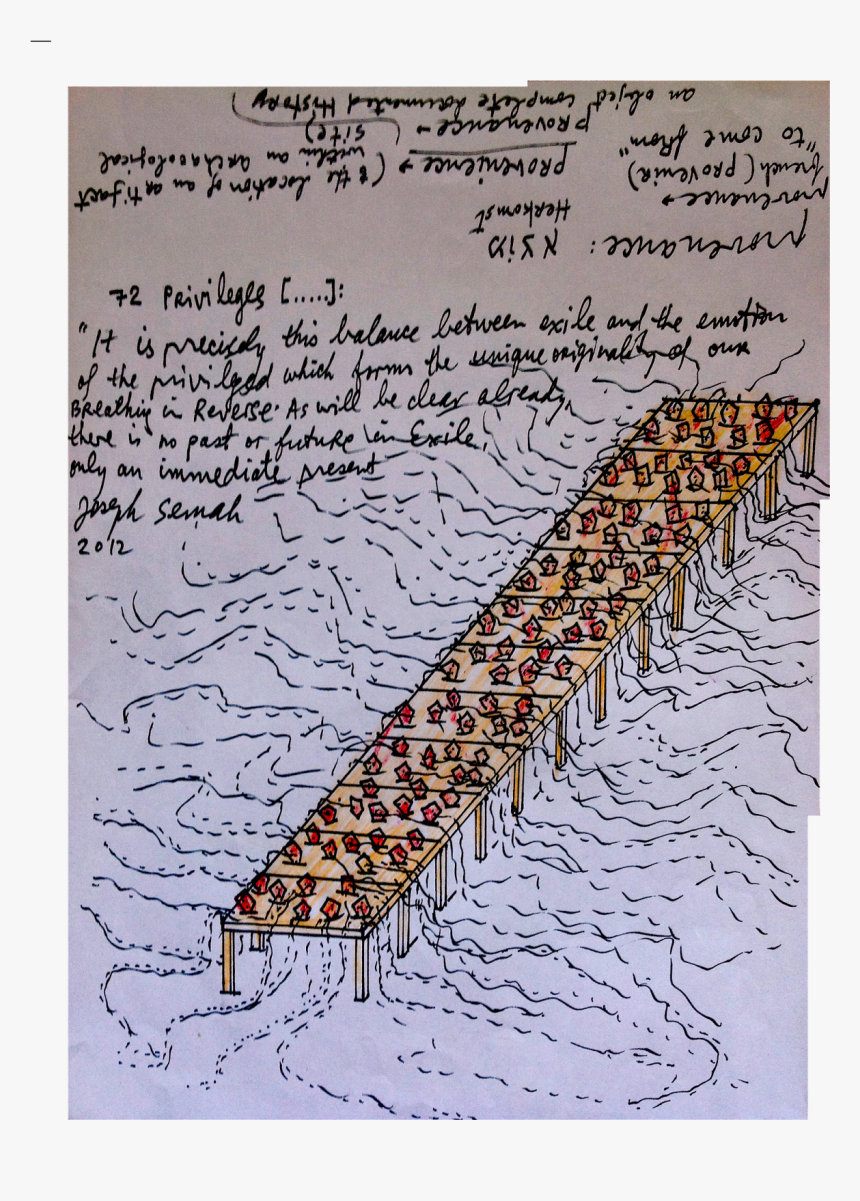 provenance:
Herkomst
provenance →
french (provenir)
"to come from"
provenience → (& the location of an artifact
within an archaeological
site)
provenance → (
an object complete documented History)
72 Privileges [.....]:
"It is precisely this balance between exile and the emotion
of the privilged which forms the unique originality of our
Breathing in Reverse. As will be clear already,
there is no past or future in Exile,
only an immediate present
Joseph Semah
2012